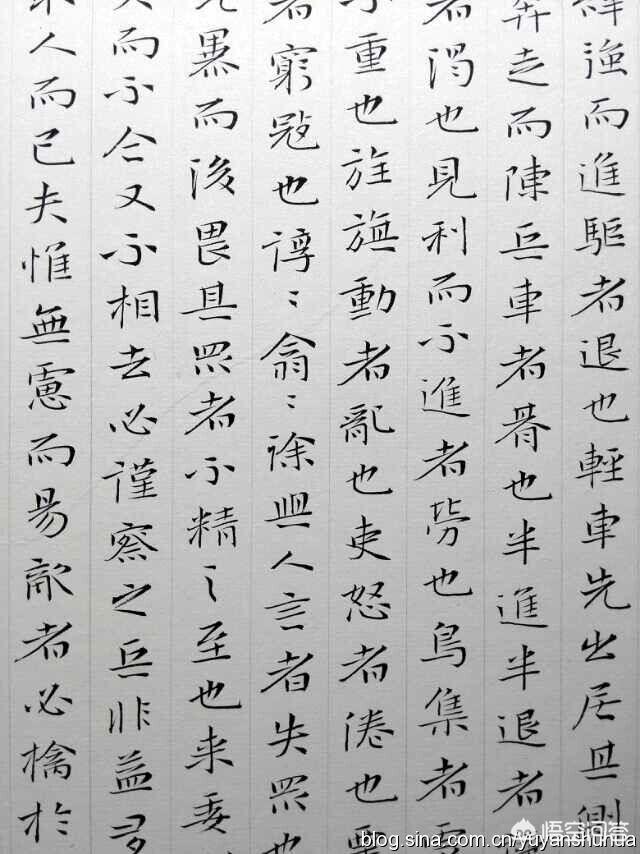 強而進驅者退也輕車先出居其側
奔走而陳兵車者朞也半進半退者
者渴也見利而不進者勞也鳥集者
不重也旌旗動者亂也吏怒者倦也
者窮寇也諄〻翕〻徐與人言者失眾也
先暴而後畏其眾者不精之至也来委
久而不合又不相去必謹察之兵非益多
取人而已夫惟無慮而易敵者必擒於
悟空问答
blog.sina.com.cn/yuyanshuhua